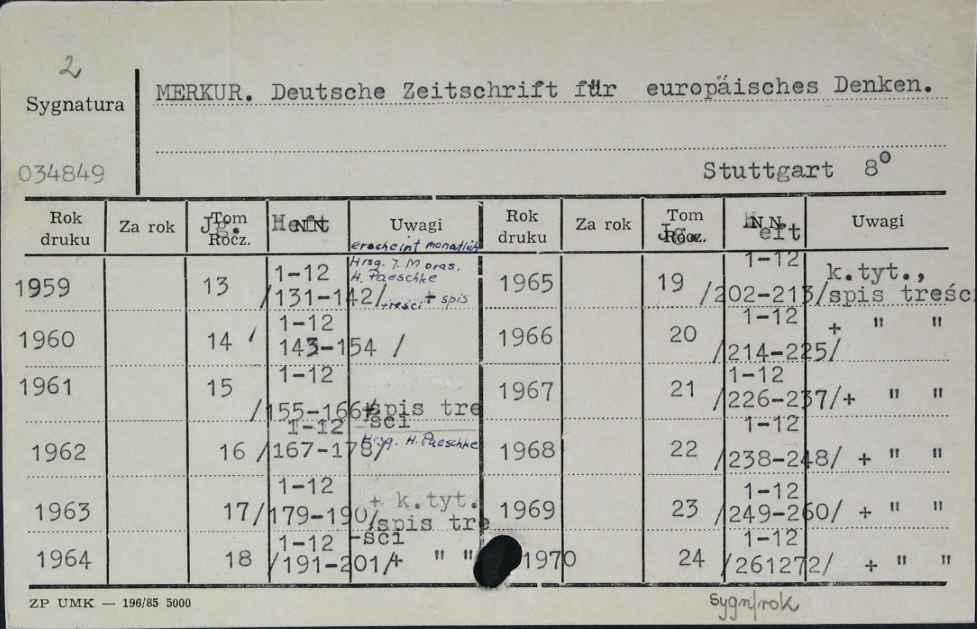 2
Sygnatura MERKUR. Deutsche Zeitschrift für europäisches Denken.
034849 Stuttgart 8°
Rok druku Za rok Tom Rocz. Jg. NN Heft Uwagi Rok druku Za rok Tom Rocz. Jg. NN Heft Uwagi
erscheint monatlich
1959 13 1-12 /131-142/ Hrsg. J. Moras. H. Paeschke + spis treści 1965 19 1-12 /202-213/ k.tyt., spis treśc
1960 14 / 1-12 143-154 / 1966 20 1-12 /214-225/ + " "
1961 15 1-12 /155-166/ +spis tre 1967 21 1-12 /226-237/+ " "
ści
1962 16 1-12 /167-178/ Hrsg. H. Paeschke 1968 22 1-12 /238-248/ + " "
1963 17 1-12 /179-190/ + k.tyt. /spis tre 1969 23 1-12 /249-260/ + " "
-ści
1964 18 1-12 /191-201/+ " " 1970 24 1-12 /261272/ + " "
ZP UMK — 196/85 5000 sygn/rok